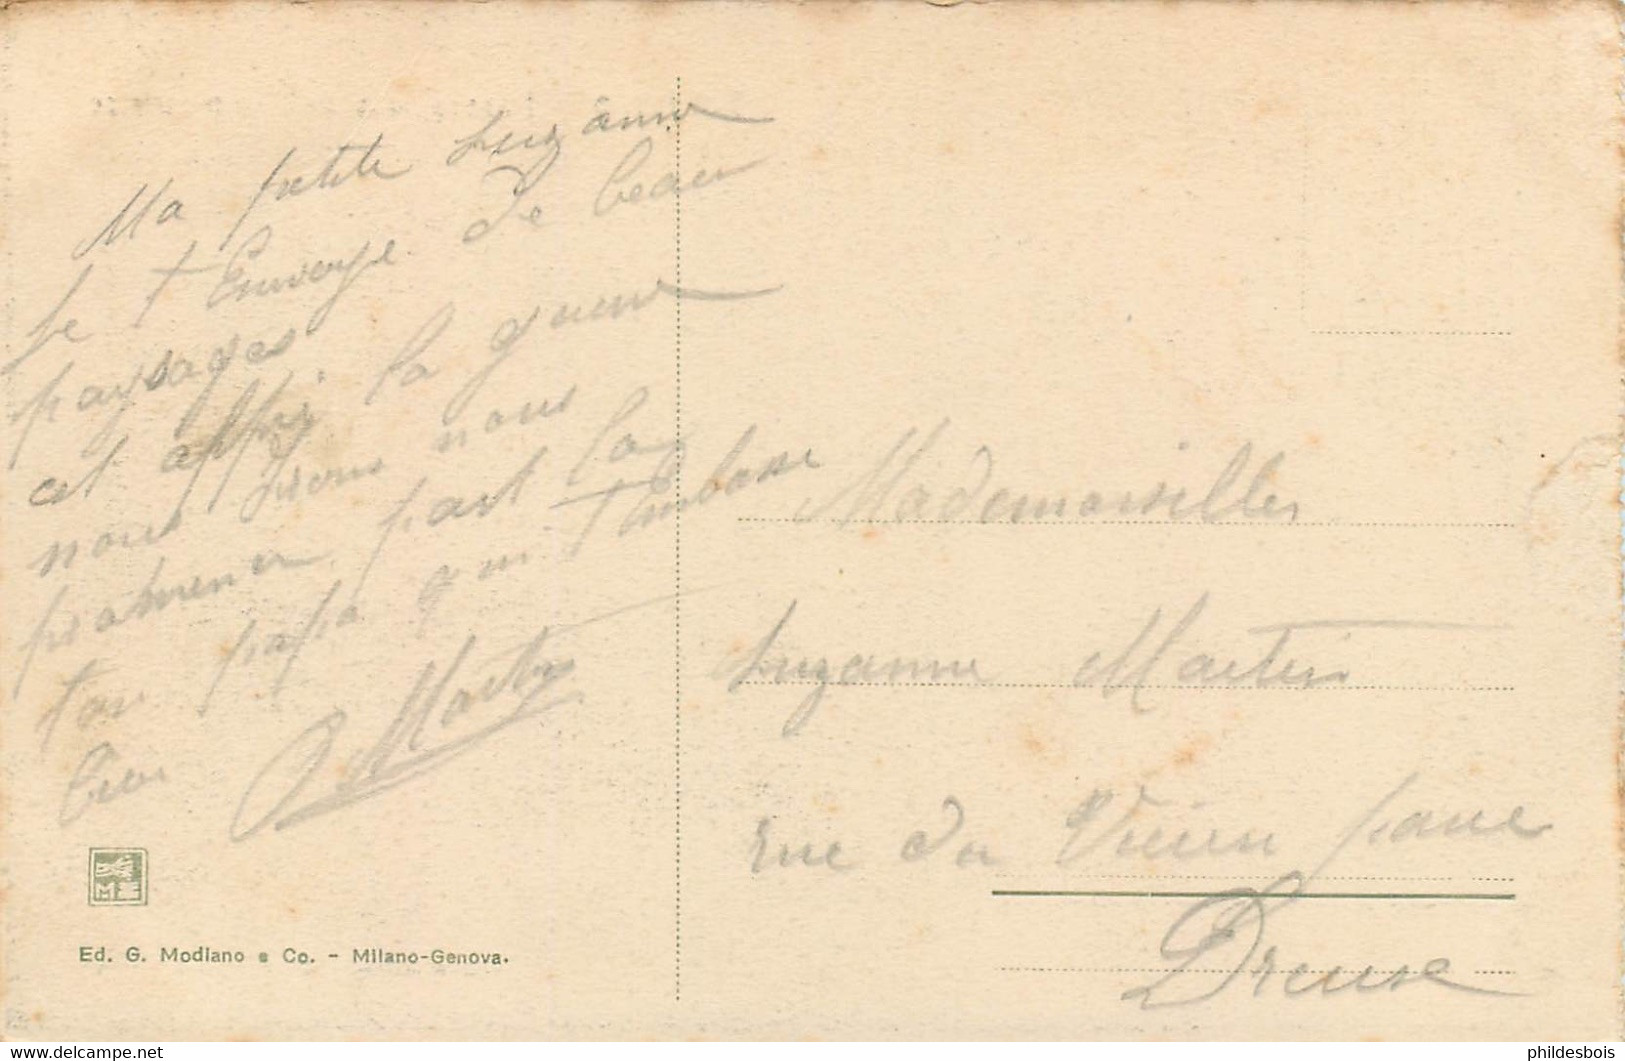 Ma petite Suzanne
Je t'Envoye de beau
paysages
et appré la guerre
nous irons nous
promener part la
ton papa qui T'embrasse
bien
Martin
Ed. G. Modiano e Co. - Milano-Genova.
Mademoiselles
Suzanne Martin
rue du Vieux pavé
Dreux
phildesbois